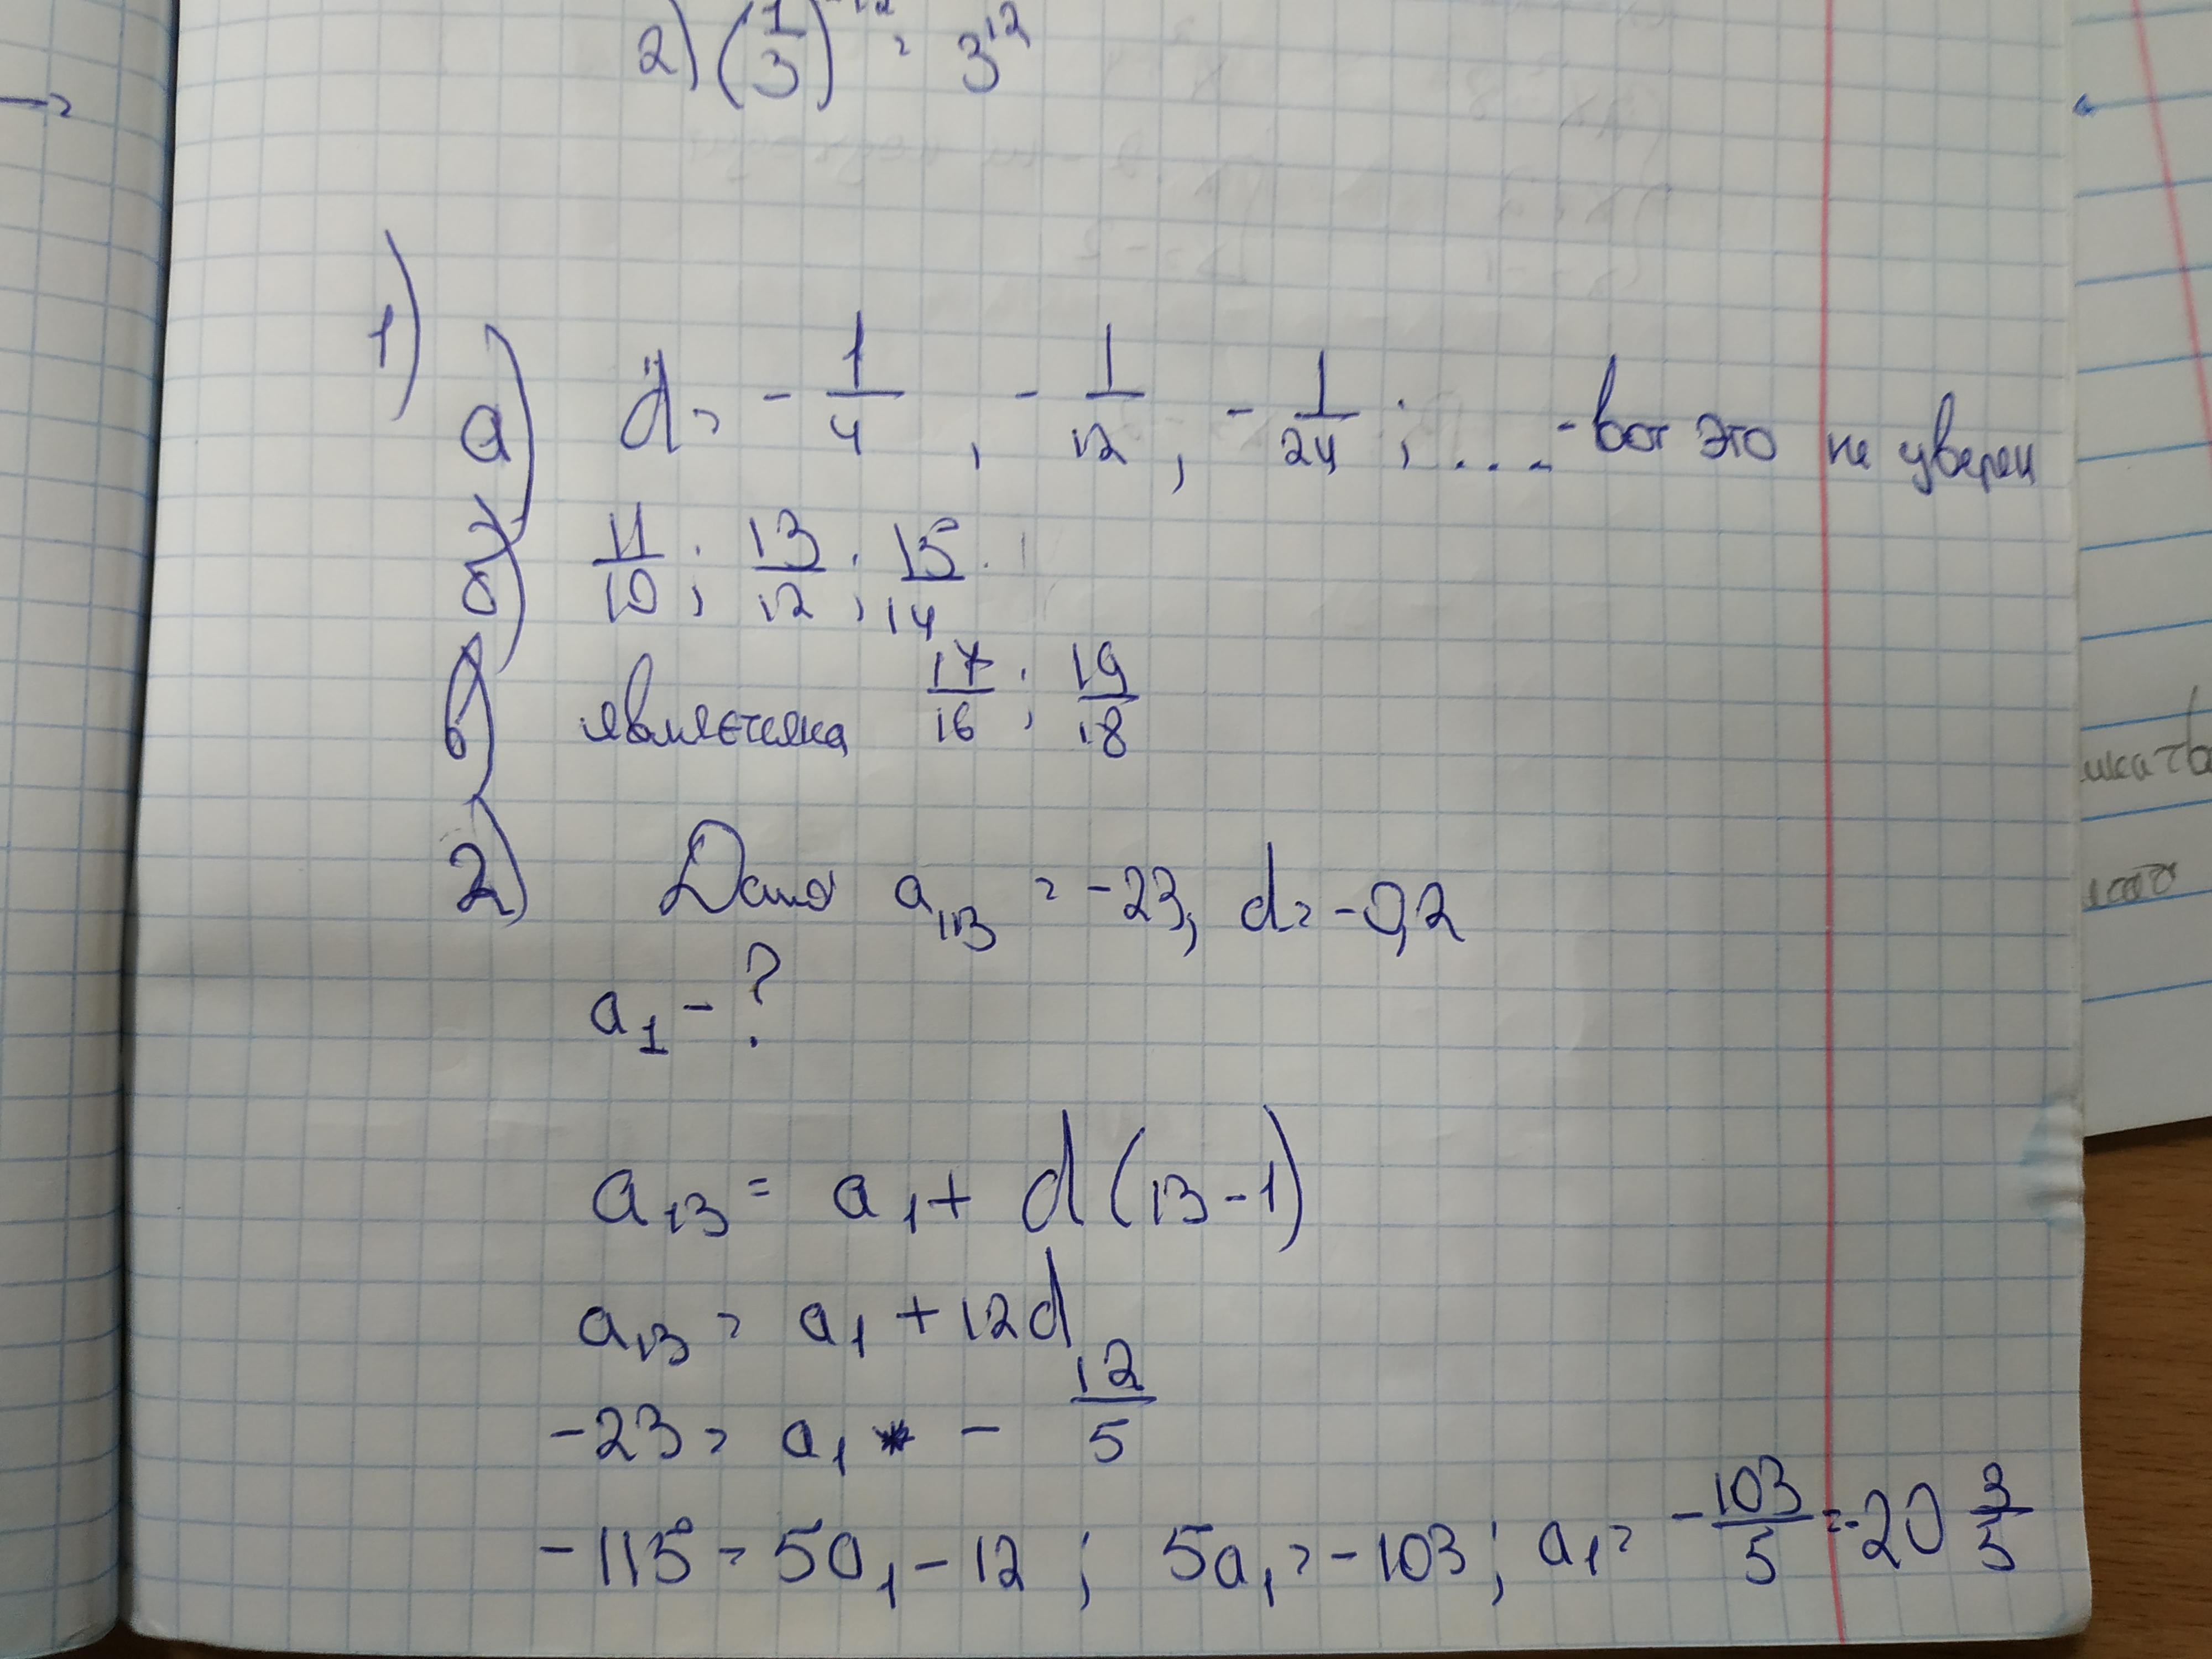 2) (1/3)^-12 = 3^12
1)
а) d = - 1/4, - 1/12, - 1/24; .... - вот это не уверен
б) 11/10; 13/12; 15/14
17/16; 19/18
в)
2) Дано a13 = -23, d = -0,2
a1 - ?
a13 = a1 + d(13-1)
a13 = a1 + 12d
-23 = a1 - 12/5
-115 = 5a1 - 12; 5a1 = -103; a1 = -103/5 = -20 3/5